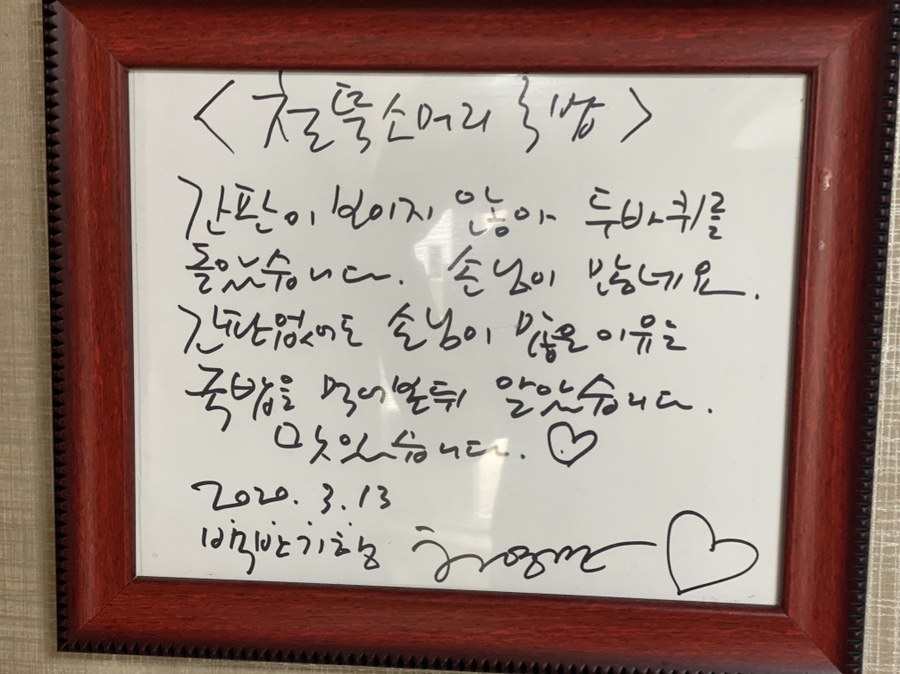 <철뚝소머리국밥>
간판이 보이지 않아 두바퀴를
돌았습니다. 손님이 많네요.
간판없어도 손님이 많은 이유를
국밥을 먹어본 뒤 알았습니다.
맛있습니다. ♡
2020. 3. 13
백반기행 허영만 ♡